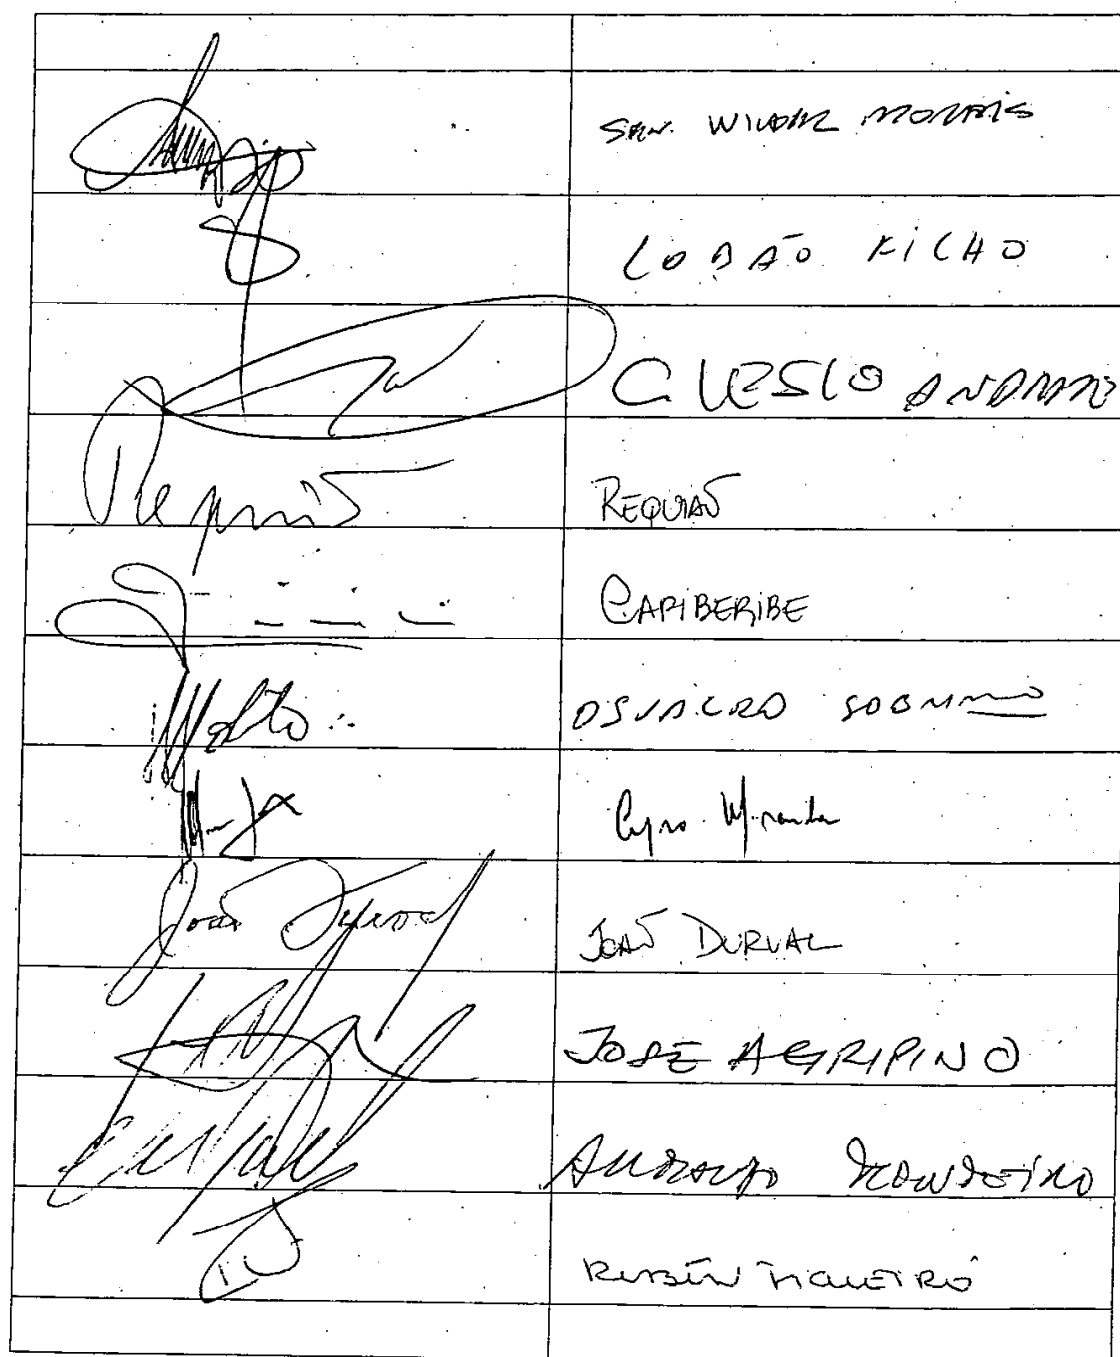 SEN. WILDER MORAIS
LOBÃO FILHO
CLESIO ANDRADE
Requião
REQUIAÕ
CAPIBERIBE
OSVALDO SOBRINHO
Cyro Miranda
João Durval
JOAÕ DURVAL
JOSE AGRIPINO
ARMANDO MONTEIRO
RUBEN FIGUEIRÓ